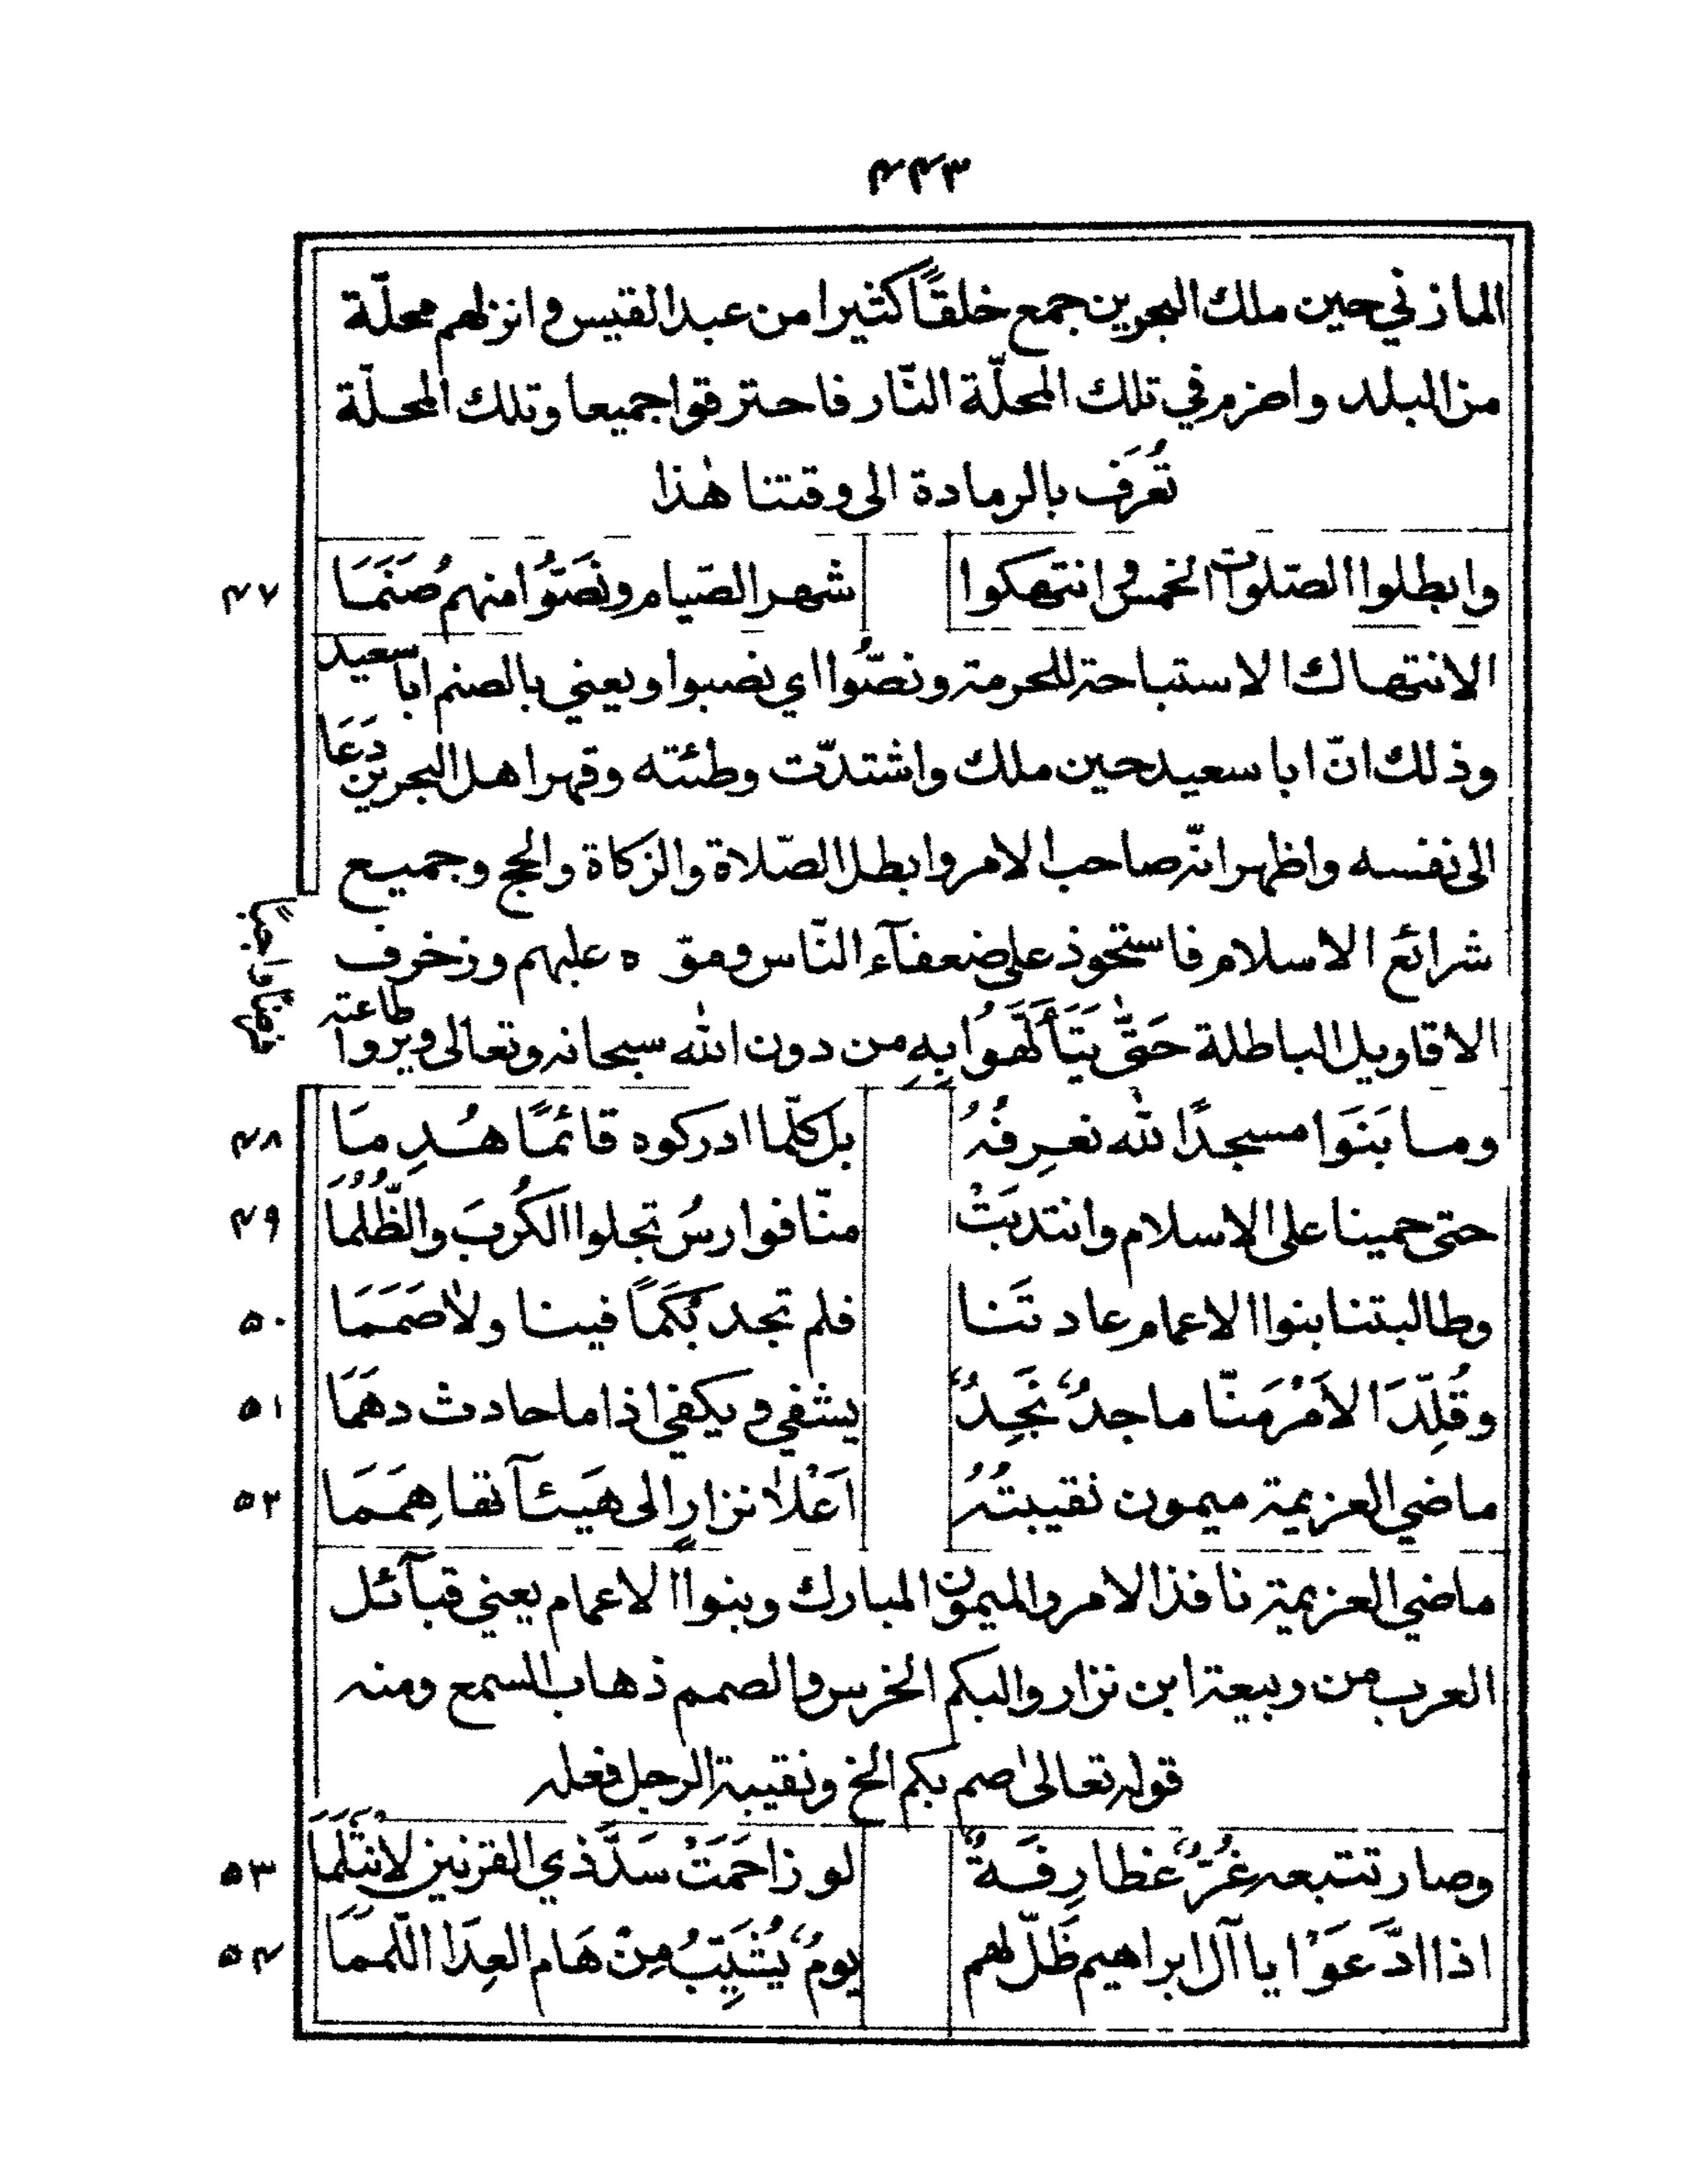 ٤٤٣
المازني حين ملك البحرين جمع خلقًا كثيرا من عبد القيس وانزلهم محلّة
من البلد واضرم في تلك المحلّة النّار فاحترقوا جميعا وتلك المحلّة
تُعرَف بالرمادة الى وقتنا هٰذا
وابطلوا الصّلوات الخمس وانتهكوا شهر الصّيام ونَصَّوُا منهم صَنَمَا ٤٧
الانتهاك الاستباحة للحرمة ونصّوا اي نصبوا ويعني بالصنم ابا سعيد
وذلك انّ ابا سعيد حين ملك واشتدّت وطئته وقهر اهل البحرين دَعَا
الى نفسه واظهر انّه صاحب الامر وابطل الصّلاة والزكاة والحج وجميع
شرائع الاسلام فاستحوذ على ضعفآء النّاس ومقّ ه عليهم وزخرف
الاقاويل الباطلة حَتّٰى يَتَأَلَّهُوا بِهِ من دون الله سبحانه وتعالى ويروا طاعته
فرضًا واجبًا
وما بَنَوَا مسجدًا لله نعرِفُهُ بل كلّما ادركوه قائمًا هُدِ مَا ٤٨
حتى حمينا على الاسلام وانتدبَتْ منّا فوارسُ تجلوا الكُرَبَ والظُّلُمَا ٤٩
وطالبتنا بنوا الاعمام عادتَنا فلم تجد بُكَمًا فينا ولاٰ صَمَمَا ٥٠
وقُلِّدَ الأَمْرَ مَنّا ماجدٌ نَجِدٌ يشفي ويكفي اذا ما حادث دهَمَا ٥١
ماضي العزيمة ميمون نقيبتُهُ اَعْلاٰ نزارٍ الى هَيئآتها هِمَمَا ٥٢
ماضي العزيمة نافذ الامر والميمون المبارك وبنوا الاعمام يعني قبآئل
العرب من ربيعة ابن نزار والبكم الخرس والصمم ذهاب السمع ومنه
قوله تعالىٰ صم بكم الخ ونقيبة الرجل فعله
وصار تتبعه غُرٌّ غطارِفَةٌ لو زاحَمَتْ سَدَّ ذي القرنين لانثَلَمَا ٥٣
اذا ادَّعَوْا يا آل ابراهيم ظَلّ لهم يومٌ يُشَيِّبُ مِنْ هَام العِدَا اللّمَمَا ٥٤